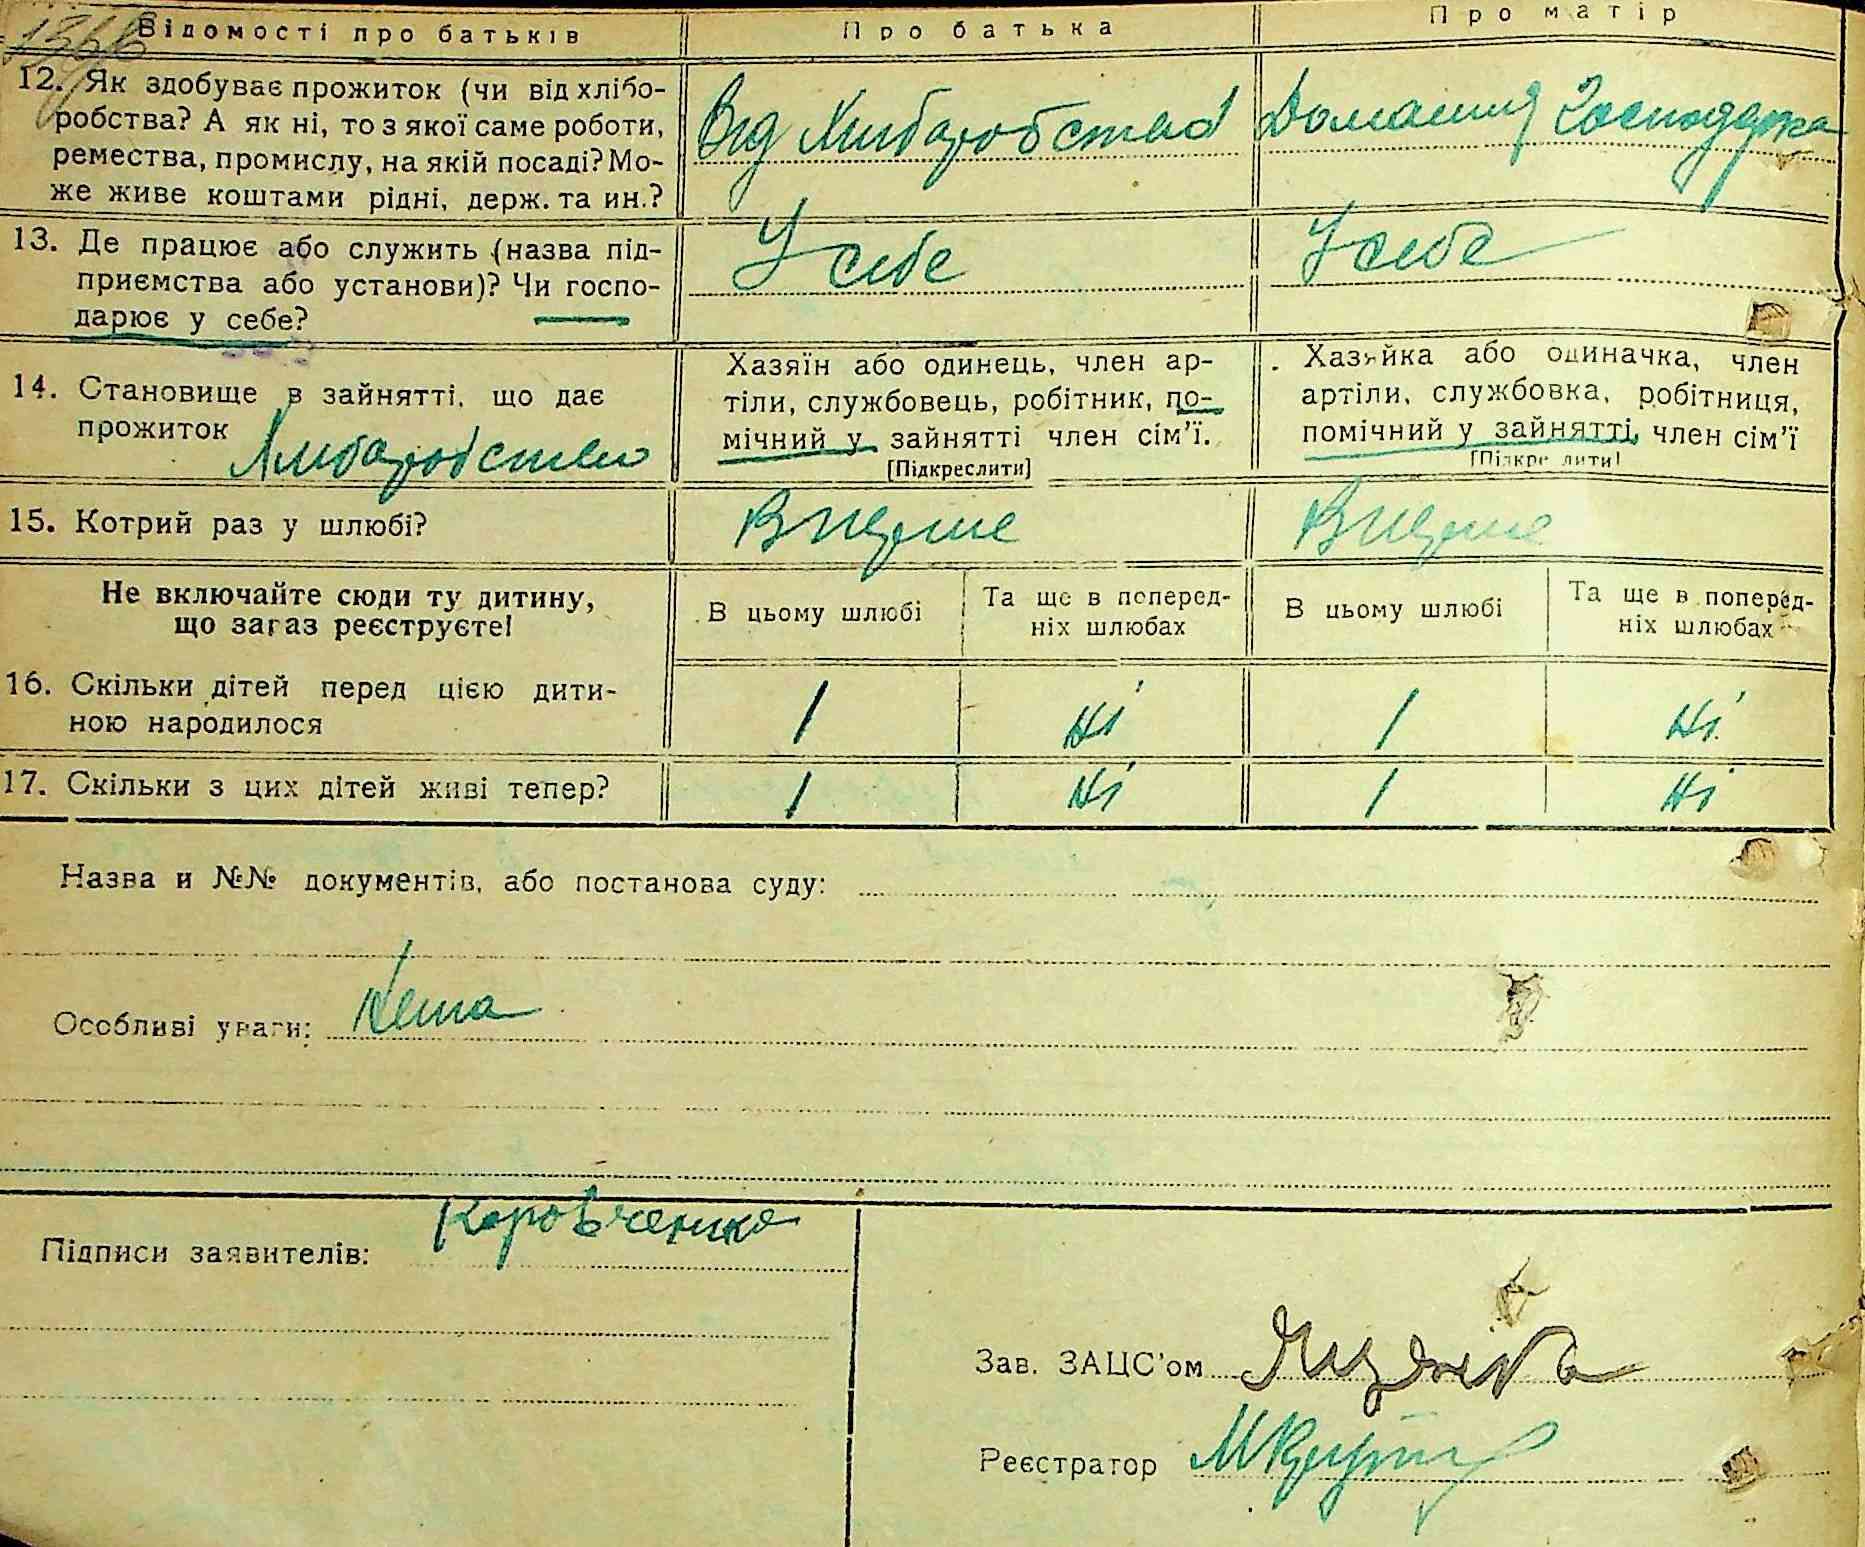 Відомості про батьків Про батька Про матір
12. Як здобуває прожиток (чи від хлібо-
робства? А як ні, то з якої саме роботи,
ремества, промислу, на якій посаді? Мо-
же живе коштами рідні, держ. та ин.?
Від Хлибаробства Домашня Господарка
13. Де працює або служить (назва під-
приємства або установи)? Чи госпо-
дарює у себе?
У себе У себе
14. Становище в зайнятті, що дає
прожиток Хлибаробство
Хазяїн або одинець, член ар-
тіли, службовець, робітник, по-
мічний у зайнятті член сім'ї.
[Підкреслити]
Хазяйка або одиначка, член
артіли, службовка, робітниця,
помічний у зайнятті, член сім'ї
[Підкреслити]
15. Котрий раз у шлюбі? Вперше Вперше
Не включайте сюди ту дитину,
що зараз реєструєте!
В цьому шлюбі Та ще в поперед-
ніх шлюбах В цьому шлюбі Та ще в поперед-
ніх шлюбах
16. Скільки дітей перед цією дити-
ною народилося 1 ні 1 ні
17. Скільки з цих дітей живі тепер? 1 ні 1 ні
Назва и №№ документів, або постанова суду:
Особливі уваги: Нема
Підписи заявителів: Коровченко
Зав. ЗАЦС'ом
Реєстратор